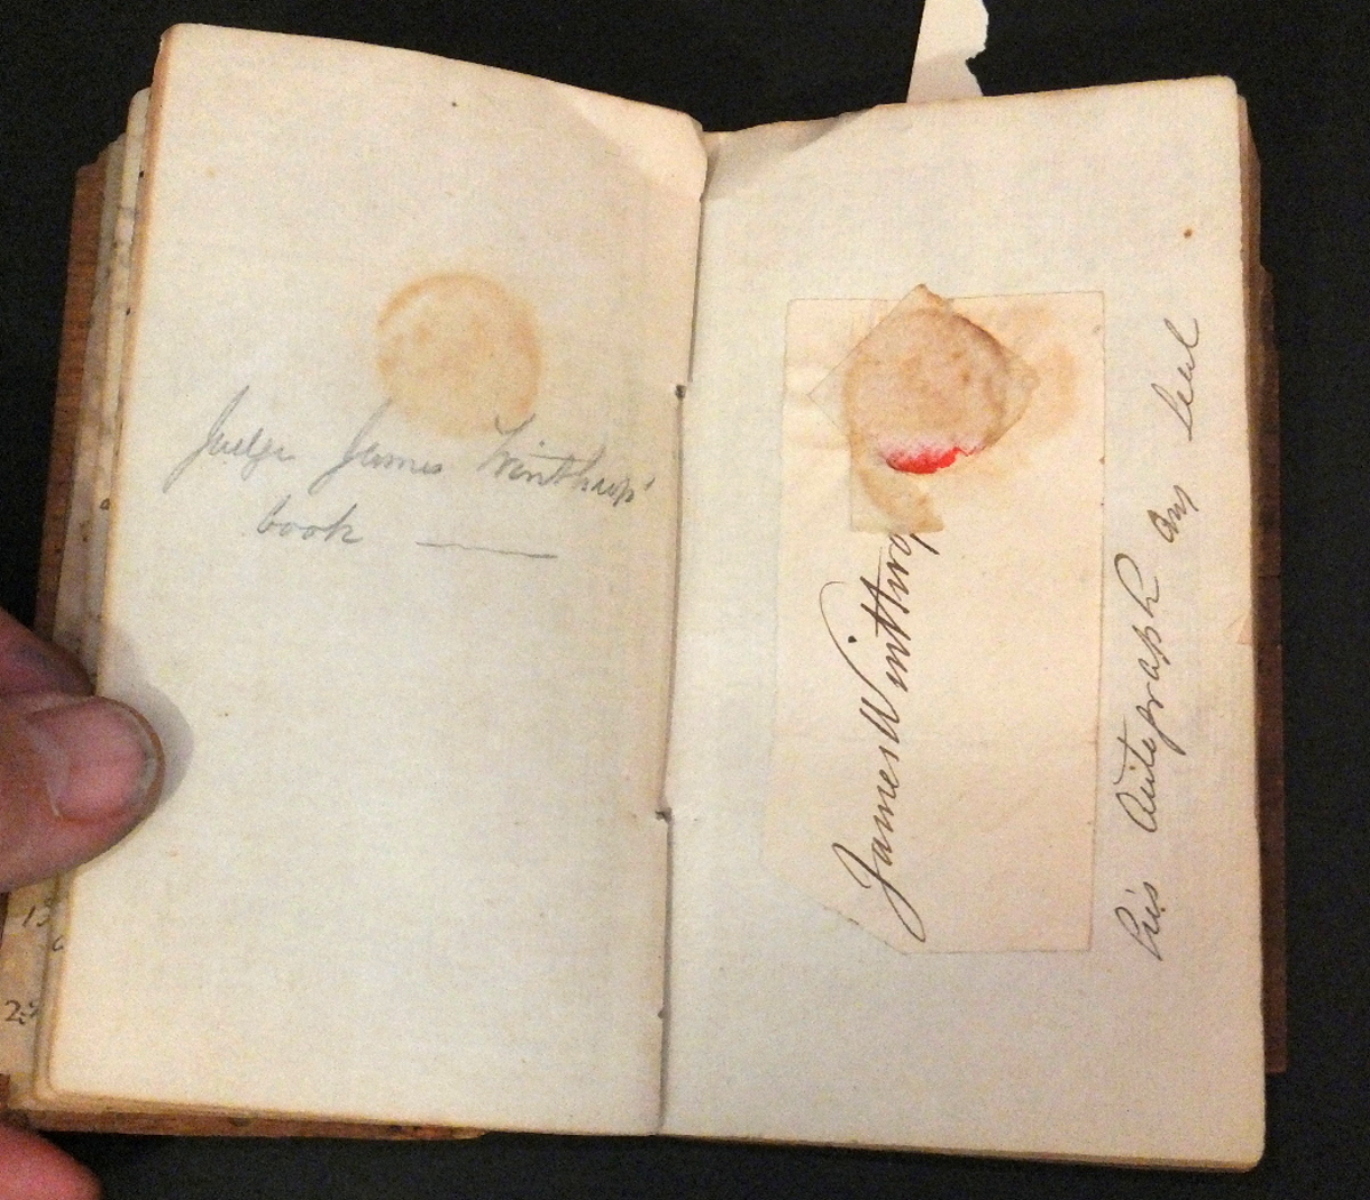 Judge James Winthrop'
book
James Winthrop
his Autograph and Seal